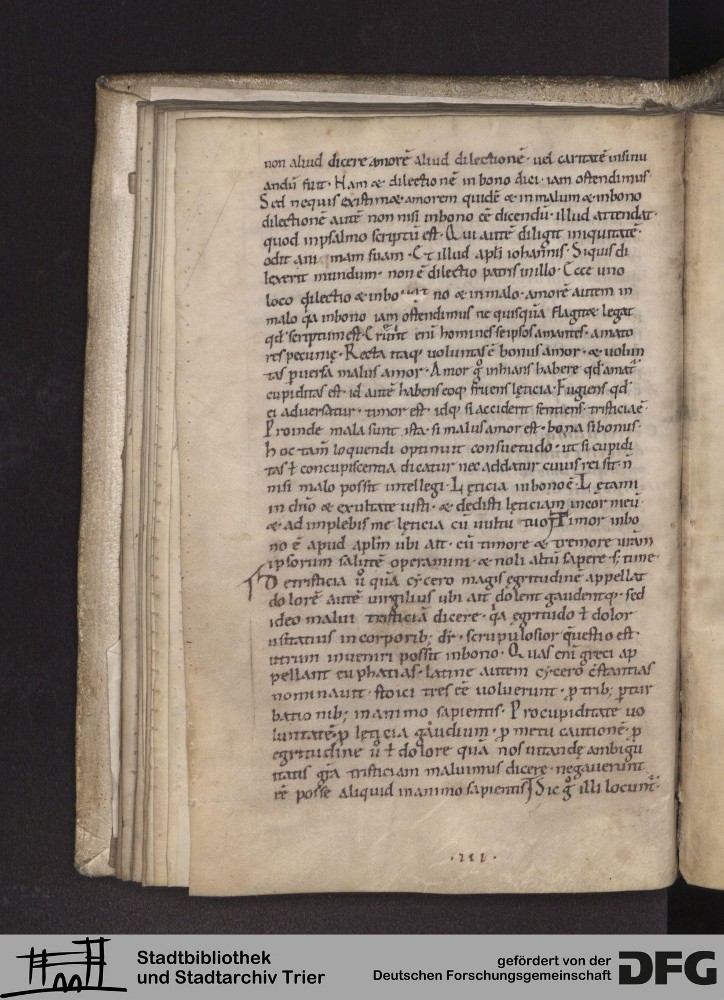 non aliud dicere amorē aliud dilectionē · uel caritatē insinu
andū fuit · Nam & dilectionē in bono dici · iam ostendimus ·
Sed nequis existimæ amorem quidē & in malum & in bono
dilectionē autē non nisi in bono eē dicendū · illud attendat ·
quod in psalmo scriptū est · Qui autē diligit iniquitatē ·
odit animam suam · Et illud apl̄i iohannis · Siquis di
lexerit mundum · non ē dilectio patris in illo · Ecce uno
loco dilectio & in bono & in malo · amorē autem in
malo q̄a in bono iam ostendimus ne quisquā flagitæ legat
qd̄ scriptum est · Erunt enī homines seipsos amantes · amato
res pecunię · Recta itaq; voluntas ē bonus amor · & volun
tas ꝑuersa malus amor · Amor gͦ inhians habere qd̄ amat̄
cupiditas est · id autē habens eoq; fruens lęticia · Fugiens qd̄
ei adversatur · timor est · idq; si acciderit sentiens · tristicia ē ·
Proinde mala sunt ista · si malus amor est · bona si bonus ·
hoc tam̄ loquendi optinuit consuetudo · ut si cupidi
tas ł concupiscentia dicatur nec addatur cuius rei sit · n̄
nisi malo possit intellegi · Lęticia in bono ē · Lętami
ni in dn̄o & exultate iusti · & dedisti lęticiam in cor meū ·
& adimplebis me lęticia cū uultu tuo · Timor in bo
no ē apud apl̄m ubi ait · cū timore & tremore uram
ipsorum salutē operamini · & noli altū sapere s; time ·
De tristicia ū quā cycero magis egritudinē appellat
dolorē autē uirgilius ubi ait dolent gaudentq; · sed
ideo malui tristiciā dicere · q̄a ęgritudo ł dolor
usitatius in corporib; dr̄ · scrupulosior questio est ·
utrum inveniri possit in bono · Quas enī greci ap
pellant euphatias · latine autem cycero c̄stantias
nominauit · stoici tres eē uoluerunt · ꝑ trib; ꝑtur
bationib; in animo sapientis · Pro cupiditate uo
luntatē · ꝓ lęticia gaudium · ꝓ metu cautionē · ꝓ
egritudine ū ł dolore quā nos uitandę ambigu
itatis gr̄a tristiciam maluimus dicere · negauerunt
eē posse aliquid in animo sapientis Sic gͦ illi locunt̄ ·
· III ·
Stadtbibliothek
und Stadtarchiv Trier
gefördert von der
Deutschen Forschungsgemeinschaft
DFG